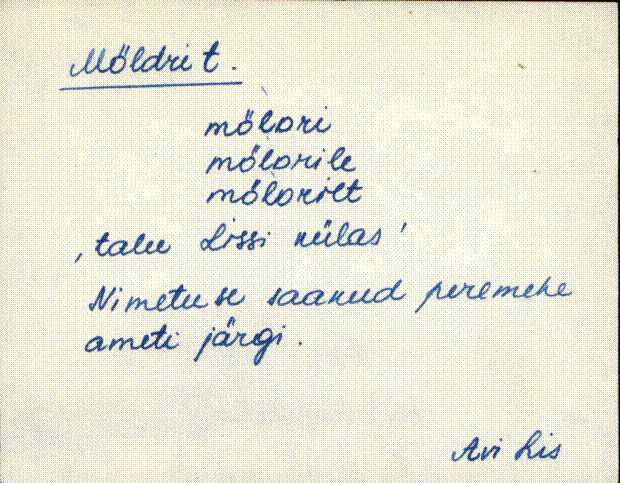 Möldri t.
möĺdri
möĺdrile
möĺdrilt
‚talu Lissi külas’
Nimetuse saanud peremehe
ameti järgi.
Avi Lis